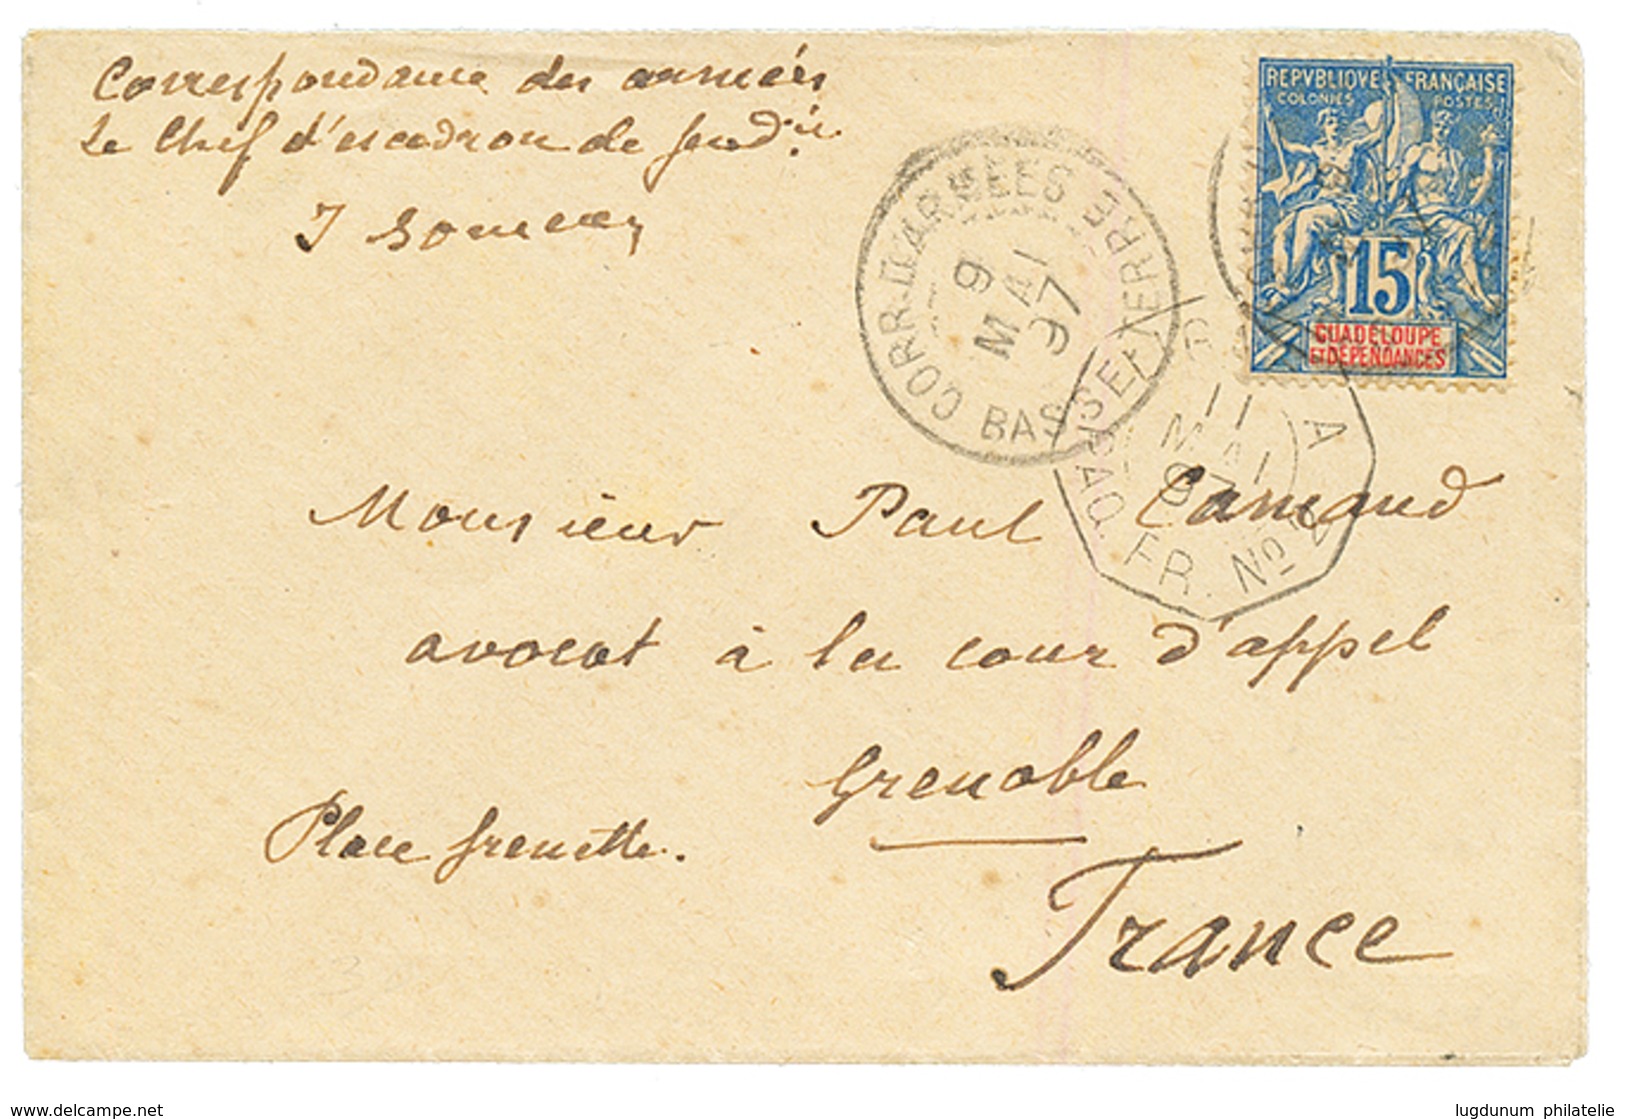 Correspondance des armées
Le Chef d'escadron de gend.ie
REPVBLIQVE FRANÇAISE
COLONIES POSTES
15
GUADELOUPE
ET DEPENDANCES
CORR. D'ARMEES BASSE-TERRE
9
MAI
97
11
MAI
97
PAQ. FR. No
Monsieur Paul
avocat à la cour d'appel
Grenoble
Place Grenette.
France
delcampe.net
lugdunum philatelie